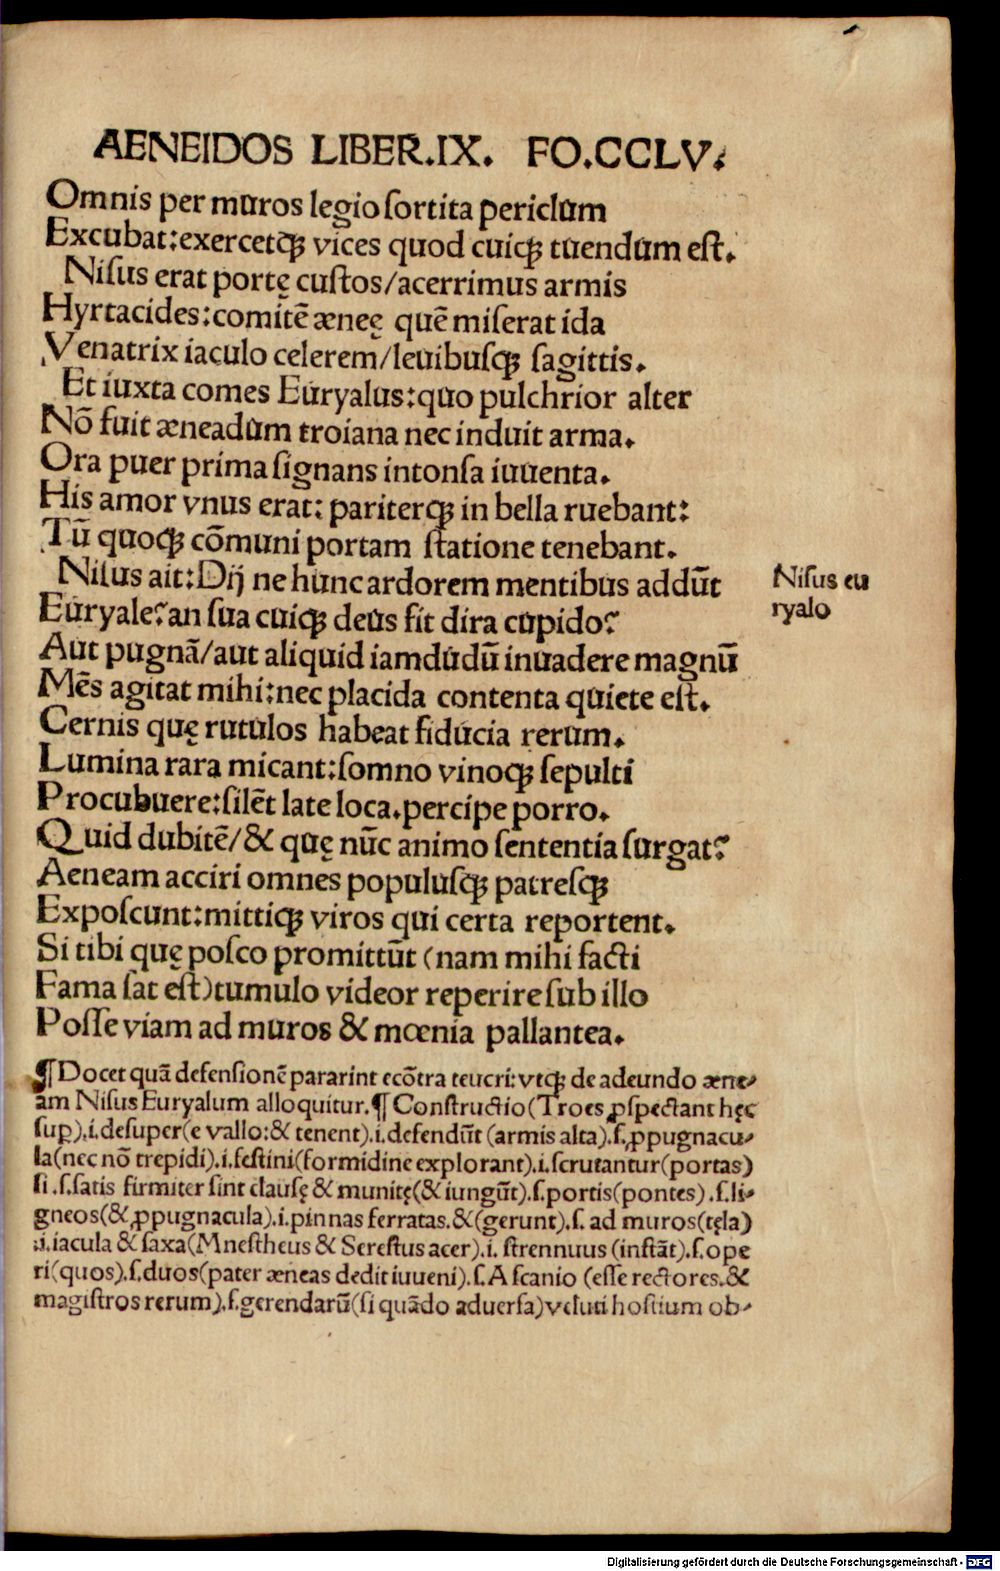 AENEIDOS LIBER.IX. FO.CCLV.
Omnis per muros legio ſortita periclum
Excubat:exercetqꝫ vices quod cuiqꝫ tuendum eſt.
Niſus erat portę cuſtos/acerrimus armis
Hyrtacides:comitē æneę quē miſerat ida
Venatrix iaculo celerem/leuibuſqꝫ ſagittis.
Et iuxta comes Euryalus:quo pulchrior alter
Nō fuit æneadum troiana nec induit arma.
Ora puer prima ſignans intonſa iuuenta.
His amor vnus erat: pariterqꝫ in bella ruebant:
Tū quoqꝫ cōmuni portam ſtatione tenebant.
Niſus ait:Dij ne hunc ardorem mentibus addūt
Euryale?an ſua cuiqꝫ deus fit dira cupido?
Aut pugnā/aut aliquid iamdudū inuadere magnū
Mēs agitat mihi:nec placida contenta quiete eſt.
Cernis quę rutulos habeat fiducia rerum.
Lumina rara micant:ſomno vinoqꝫ ſepulti
Procubuere:ſilēt late loca.percipe porro.
Quid dubitē/& quę nūc animo ſententia ſurgat?
Aeneam acciri omnes populuſqꝫ patreſqꝫ
Expoſcunt:mittiqꝫ viros qui certa reportent.
Si tibi quę poſco promittūt (nam mihi facti
Fama ſat eſt)tumulo videor reperire ſub illo
Poſſe viam ad muros & mœnia pallantea.
Niſus eu
ryalo
¶Docet quā defenſionē pararint ecōtra teucri:vtqꝫ de adeundo æne-
am Niſus Euryalum alloquitur.¶Conſtructio(Troes ꝓſpectant hęc
ſuꝑ).i.deſuper(e vallo:& tenent).i.defendūt (armis alta).ſ.ꝓpugnacu-
la(nec nō trepidi).i.feſtini(formidine explorant).i.ſcrutantur(portas)
ſi .ſ.ſatis firmiter ſint clauſę & munitę(& iungūt).ſ.portis(pontes).ſ.li-
gneos(& ꝓpugnacula).i.pinnas ferratas.&(gerunt).ſ. ad muros(tęla)
.i.iacula & ſaxa(Mneſtheus & Sereſtus acer).i. ſtrennuus (inſtāt).ſ.ope
ri(quos).ſ.duos(pater æneas dedit iuueni).ſ.Aſcanio (eſſe rectores.&
magiſtros rerum).ſ.gerendarū(ſi quādo aduerſa)veluti hoſtium ob-
Digitalisierung gefördert durch die Deutsche Forschungsgemeinschaft - DFG